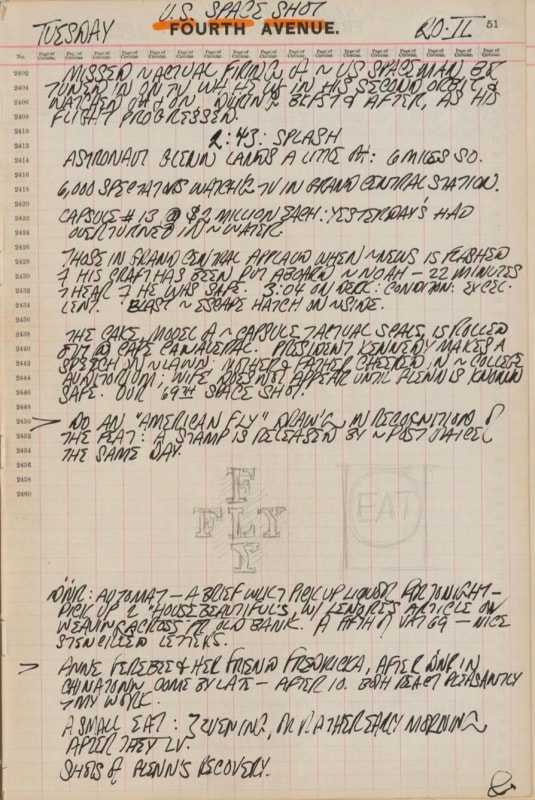 U.S. SPACE SHOT
TUESDAY FOURTH AVENUE. 20-II 51
No. Page of Circular. Page of Circular. Page of Circular. Page of Circular. Page of Circular. Page of Circular. Page of Circular. Page of Circular. Page of Circular. Page of Circular. Page of Circular.
2402 MISSED ~ ACTUAL FIRING OF ~ US SPACEMAN, BUT
2404 TUNED IN ON TV WH. HE WS IN HIS SECOND ORBIT &
2406 WATCHED OFF & ON DURING BKFST & AFTER, AS HIS
2408 FLIGHT PROGRESSED.
2410 2:43: SPLASH
2412
2414 ASTRONAUT GLENN LANDS A LITTLE : 6 MILES SO.
2416
2418 6,000 SPECTATORS WATCH'G TV IN GRAND CENTRAL STATION.
2420
2422 CAPSULE #13 @ $2 MILLION EACH: YESTERDAY'S HAD
2424 OVERTURNED IN ~ WATER.
2426
2428 THOSE IN GRAND CENTRAL APPLAUD WHEN ~ NEWS IS FLASHED
2430 HIS CRAFT HAS BEEN PUT ABOARD ~ NOAH – 22 MINUTES
2432 HEAR HE WAS SAFE. 3:04 ON DECK: CONDITION: EXCEL-
2434 LENT. BLAST ~ ESCAPE HATCH ON ~ SIDE.
2436
2438 THE CAKE, MODEL OF ~ CAPSULE ACTUAL SCALE, IS ROLLED
2440 OUT @ CAPE CANAVERAL. PRESIDENT KENNEDY MAKES A
2442 SPEECH ON ~ LAWN; MOTHER & FATHER CHEERED IN ~ COLLEGE
2444 AUDITORIUM; WIFE DOES NOT APPEAR UNTIL GLENN IS KNOWN
2446 SAFE. OUR 69TH SPACE SHOT.
2448
2450 > DO AN "AMERICAN FLY" DRAW'G ~ IN RECOGNITION OF
2452 THE FEAT: A STAMP IS RELEASED BY ~ POST OFFICE
2454 THE SAME DAY.
2456
2458
2460
F
FLY
Y
EAT
DINR: AUTOMAT – A BRIEF WLK PICK UP LIQUOR FOR TONIGHT –
PICK UP 2 "HOUSE BEAUTIFUL'S, W/ LENORE'S ARTICLE ON
WEAVING ACROSS FR. OLD BANK. A FIFTH OF VAT 69 – NICE
STENCILED LETTERS.
> ANNE & HER FRIEND FREDRICKA, AFTER DINR IN
CHINATOWN COME BY LATE – AFTER 10. BOTH REACT PLEASANTLY
MY WORK.
A SMALL EAT: EVENING, OR RATHER EARLY MORNING
AFTER THEY LV.
SHOTS OF GLENN'S RECOVERY.